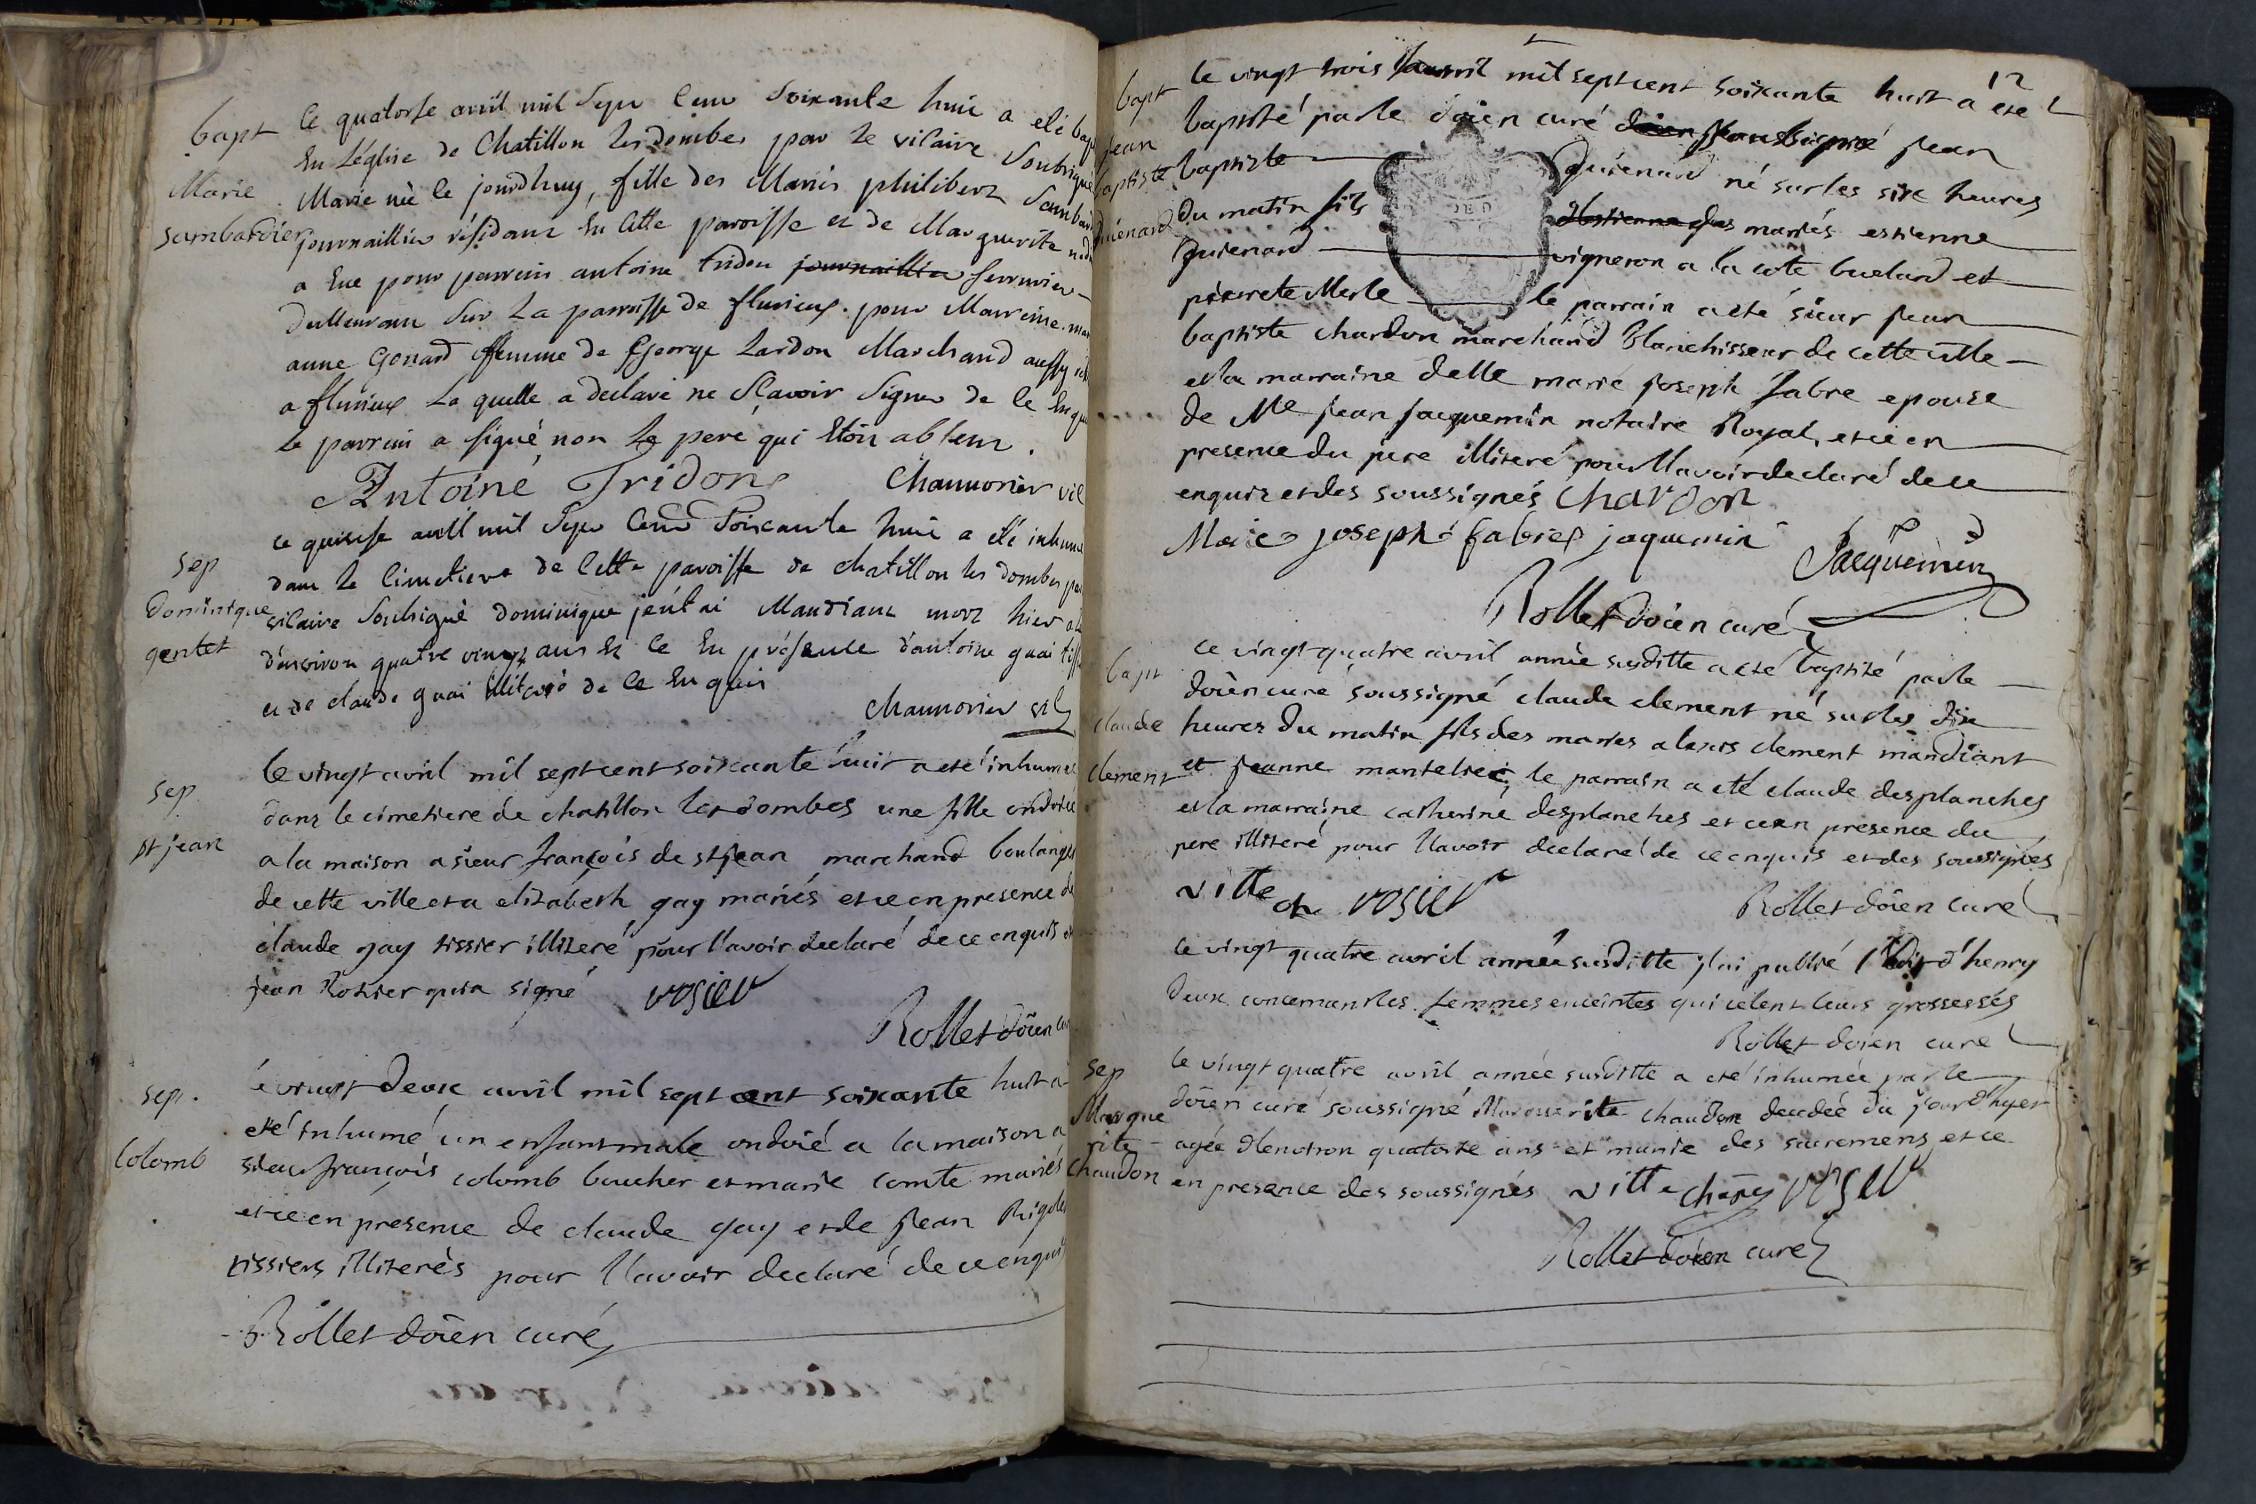 bapt
Marie
sambardier
le quatorse avril mil Sept Cent Soixante huit a eté bap
En L'église de Chatillon les dombes par le vicaire Soubsigné
Marie née le jourdhuy, fille des Mariés philibert Sambard
journaillier résidant En Cette paroisse et de Marguerite
a Eue pour parrein antoine tridon journaillier serrurier
demeurant Sur La parroisse de flurieux. pour Marreine
anne Gonard ffemme de George Lardon Marchand aussy
a flurieux La quelle a declaré ne Sçavoir Signer de Ce Enqui
le parrein a signé non Le pere qui Etoit absent.
Antoine Tridon Chamorier vic
sep
Dominique
gentet
le quinse avril mil Sept Cent Soixante huit a été inhumé
dans le Cimetiere de Cette paroisse de chatillon les dombes par
vicaire Soubsigné dominique jentai Mandiant mort hier
d'environ quatre vingt ans Et Ce En présence d'antoine guai tiss
et de claude guai illiteré de Ce Enquis
Chamorier vic
sep
st jean
le vingt avril mil sept cent soixante huit a eté inhumée
dans le cimetiere de chatillon les dombes une fille ondoiée
a la maison a sieur françois de st jean marchand boulanger
de cette ville et a elizabeth gay mariés et ce en presence de
claude gay tissier illiteré pour l'avoir declaré de ce enquis et
jean Rosier qui a signé rosier
Rollet doien cu
sep.
Colomb
le vingt deux avril mil sept cent soixante huit a
eté inhumé un enfant male ondoié a la maison a
sieur françois colomb boucher et marie comte mariés
et ce en presence de claude gay et de jean Rigolet
tissiers illiterés pour l'avoir declaré de ce enquis
Rollet doien curé
12
bapt
jean
baptiste
guienard
le vingt trois avril mil sept cent soixante huit a eté
baptisé par le doien curé doien soussigné jean
baptiste guienard né sur les six heures
du matin fils des mariés estienne
guienard vigneron a la cote buelard et
pierrete Merle le parrain a eté sieur jean
baptiste chardon marchand Blanchisseur de cette ville
et la marraine delle marie joseph fabre epouse
de Me jean jacquemin notaire Royal, et ce en
presence du pere illiteré pour l'avoir declaré de ce
enquis et des soussignés Chardon
Marie joseph fabre jaquemin Jacquemin
Rollet doien curé
bapt
claude
clement
le vingt quatre avril année susditte a eté baptisé par le
doien curé soussigné claude clement né sur les dix
heures du matin fils des mariés alexis clement mandiant
et jeanne mantelier, le parrain a eté claude desplanches
et la marraine catherine desplanches et ce en presence du
pere illiteré pour l'avoir declaré de ce enquis et des soussignés
vitte rosier Rollet doien curé
le vingt quatre avril année susditte j'ai publié l'Edit d'henry
deux concernant les femmes enceintes qui celent leurs grossesses
Rollet doien curé
sep
Margue
rite
chaudon
le vingt quatre avril année susditte a eté inhumée par le
doien curé soussigné Marguerite chaudon decedée du jour d'hyer
agée d'environ quatorse ans et munie des sacremens et ce
en presence des soussignés vitte rosier
Rollet doien curé